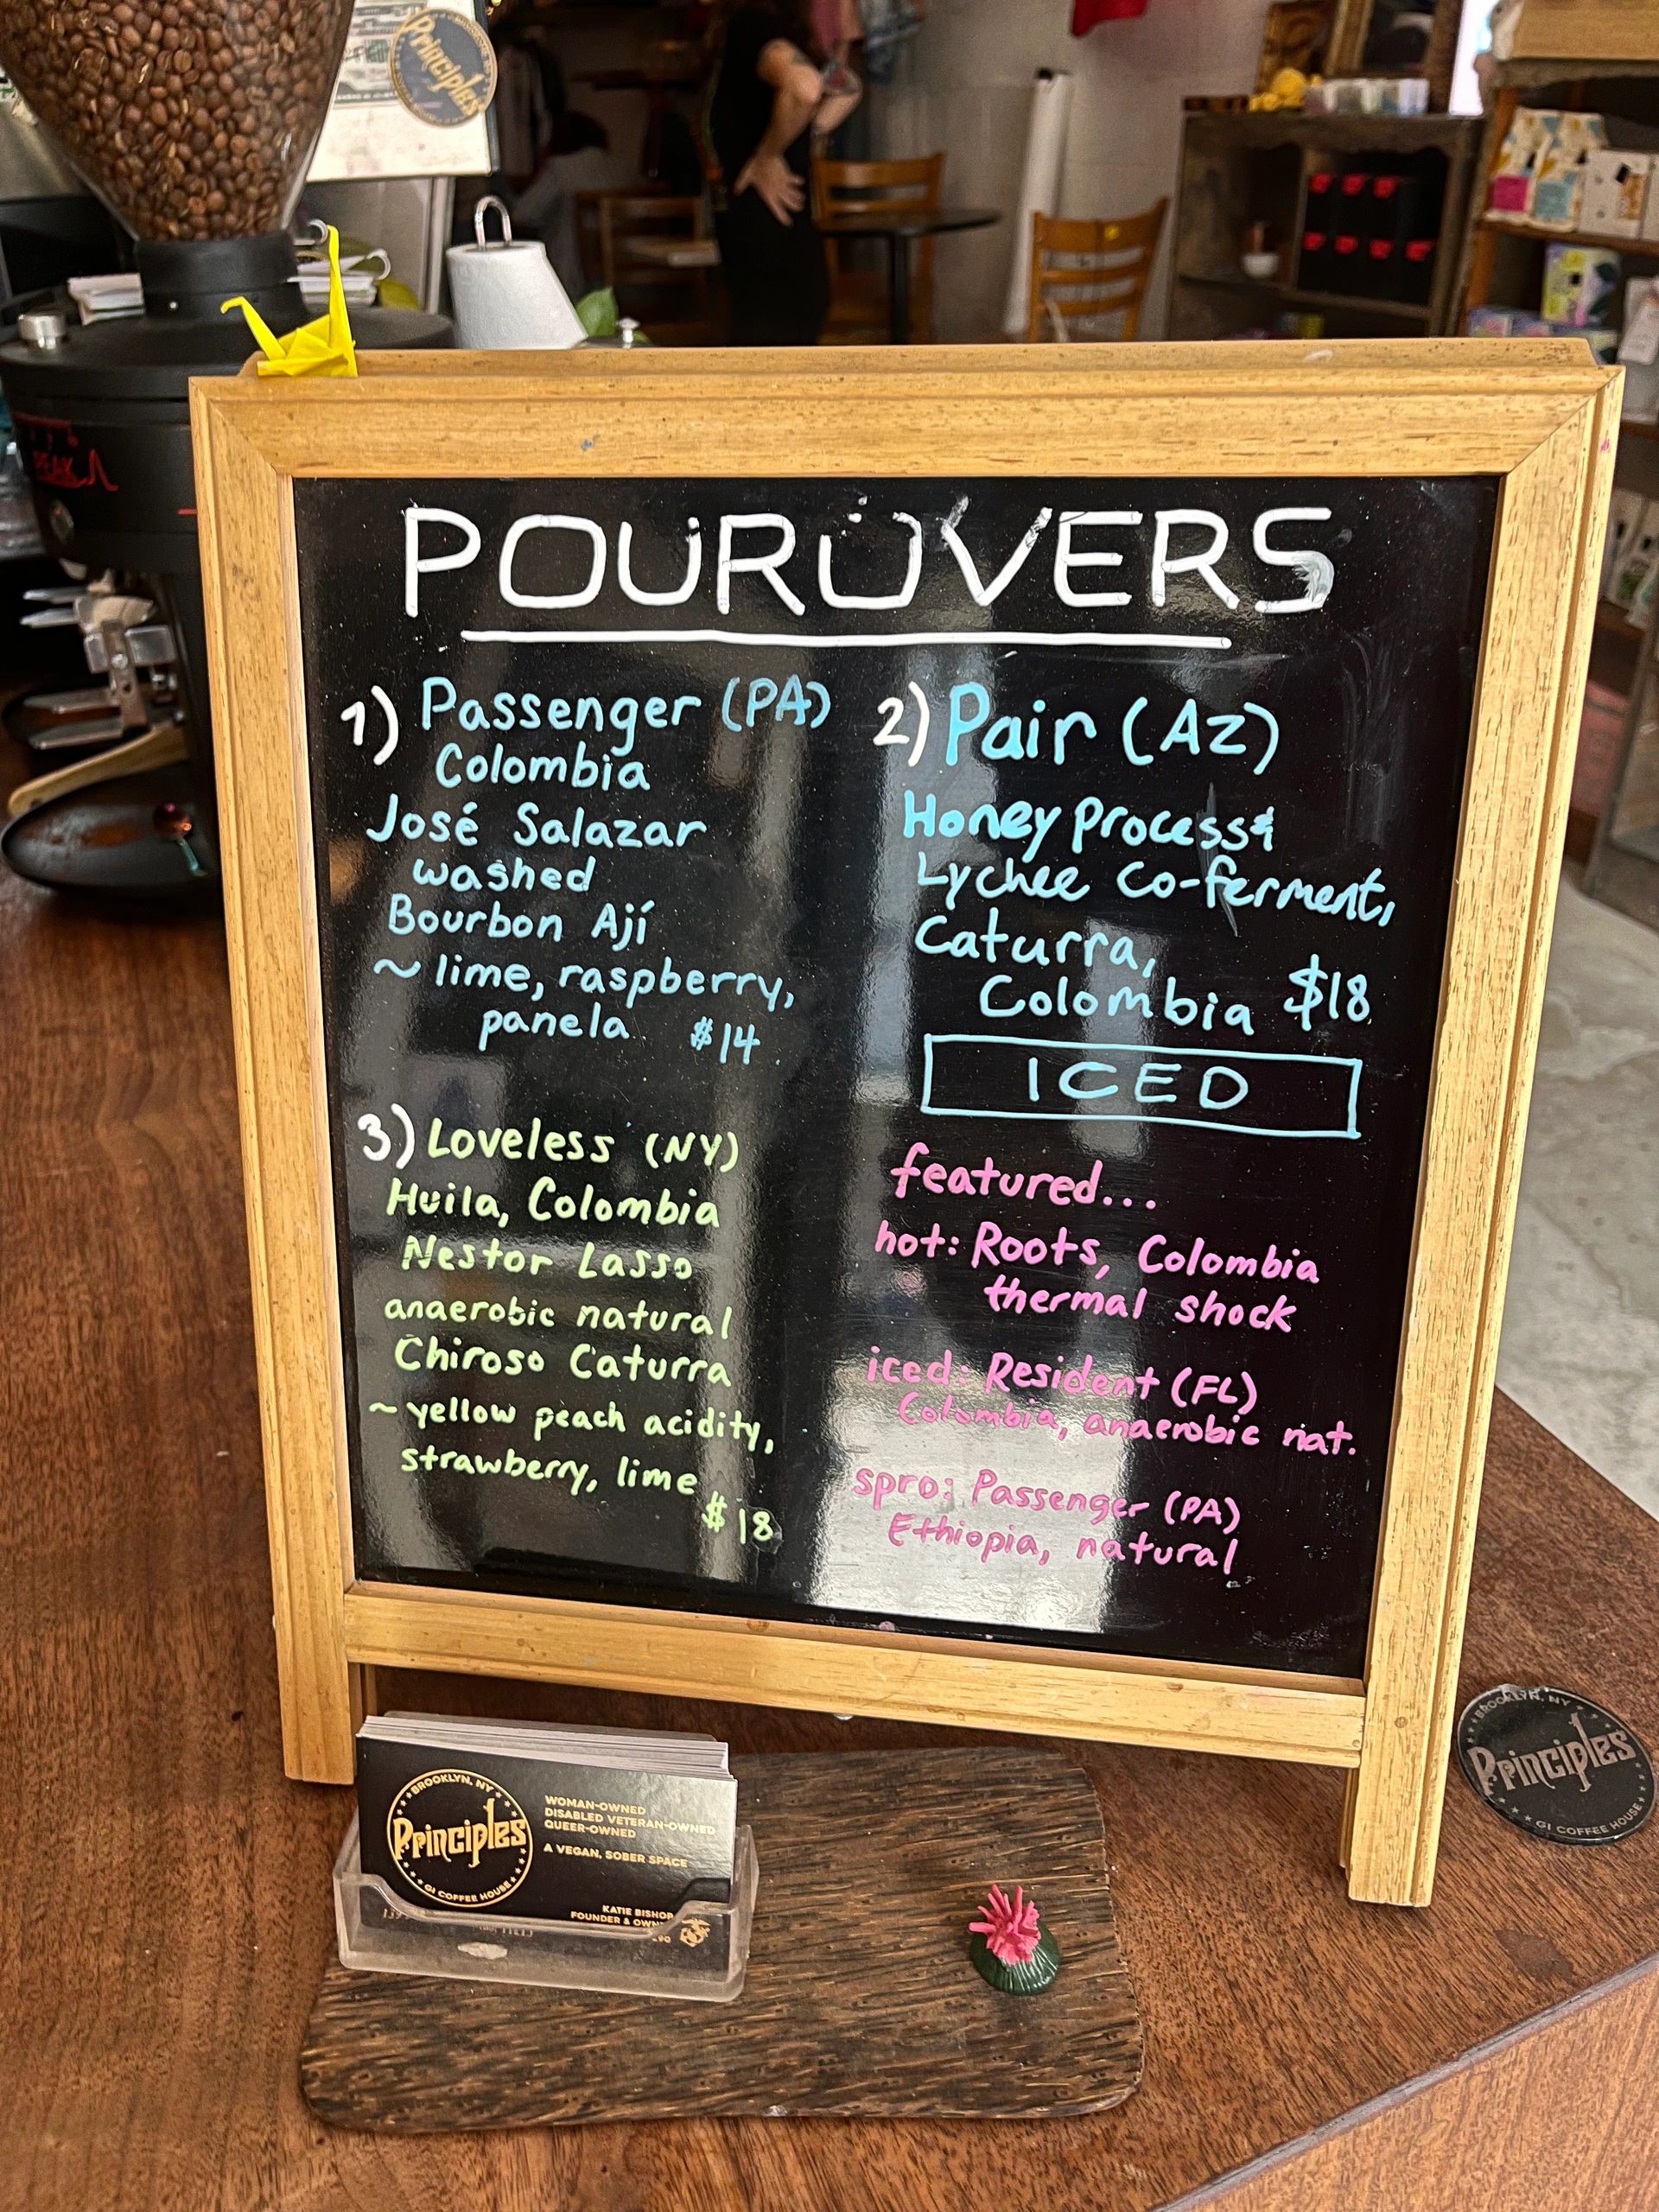 Principles
PEAK
POUROVERS
1) Passenger (PA)
Colombia
José Salazar
washed
Bourbon Ají
~ lime, raspberry,
panela $14
2) Pair (AZ)
Honey Process &
Lychee Co-ferment,
Caturra,
Colombia $18
ICED
3) Loveless (NY)
Huila, Colombia
Nestor Lasso
anaerobic natural
Chiroso Caturra
~ yellow peach acidity,
strawberry, lime
$18
featured...
hot: Roots, Colombia
thermal shock
iced: Resident (FL)
Colombia, anaerobic nat.
spro: Passenger (PA)
Ethiopia, natural
BROOKLYN, NY
Principles
GI COFFEE HOUSE
WOMAN-OWNED
DISABLED VETERAN-OWNED
QUEER-OWNED
A VEGAN, SOBER SPACE
KATIE BISHOP
FOUNDER &
BROOKLYN, NY
Principles
GI COFFEE HOUSE